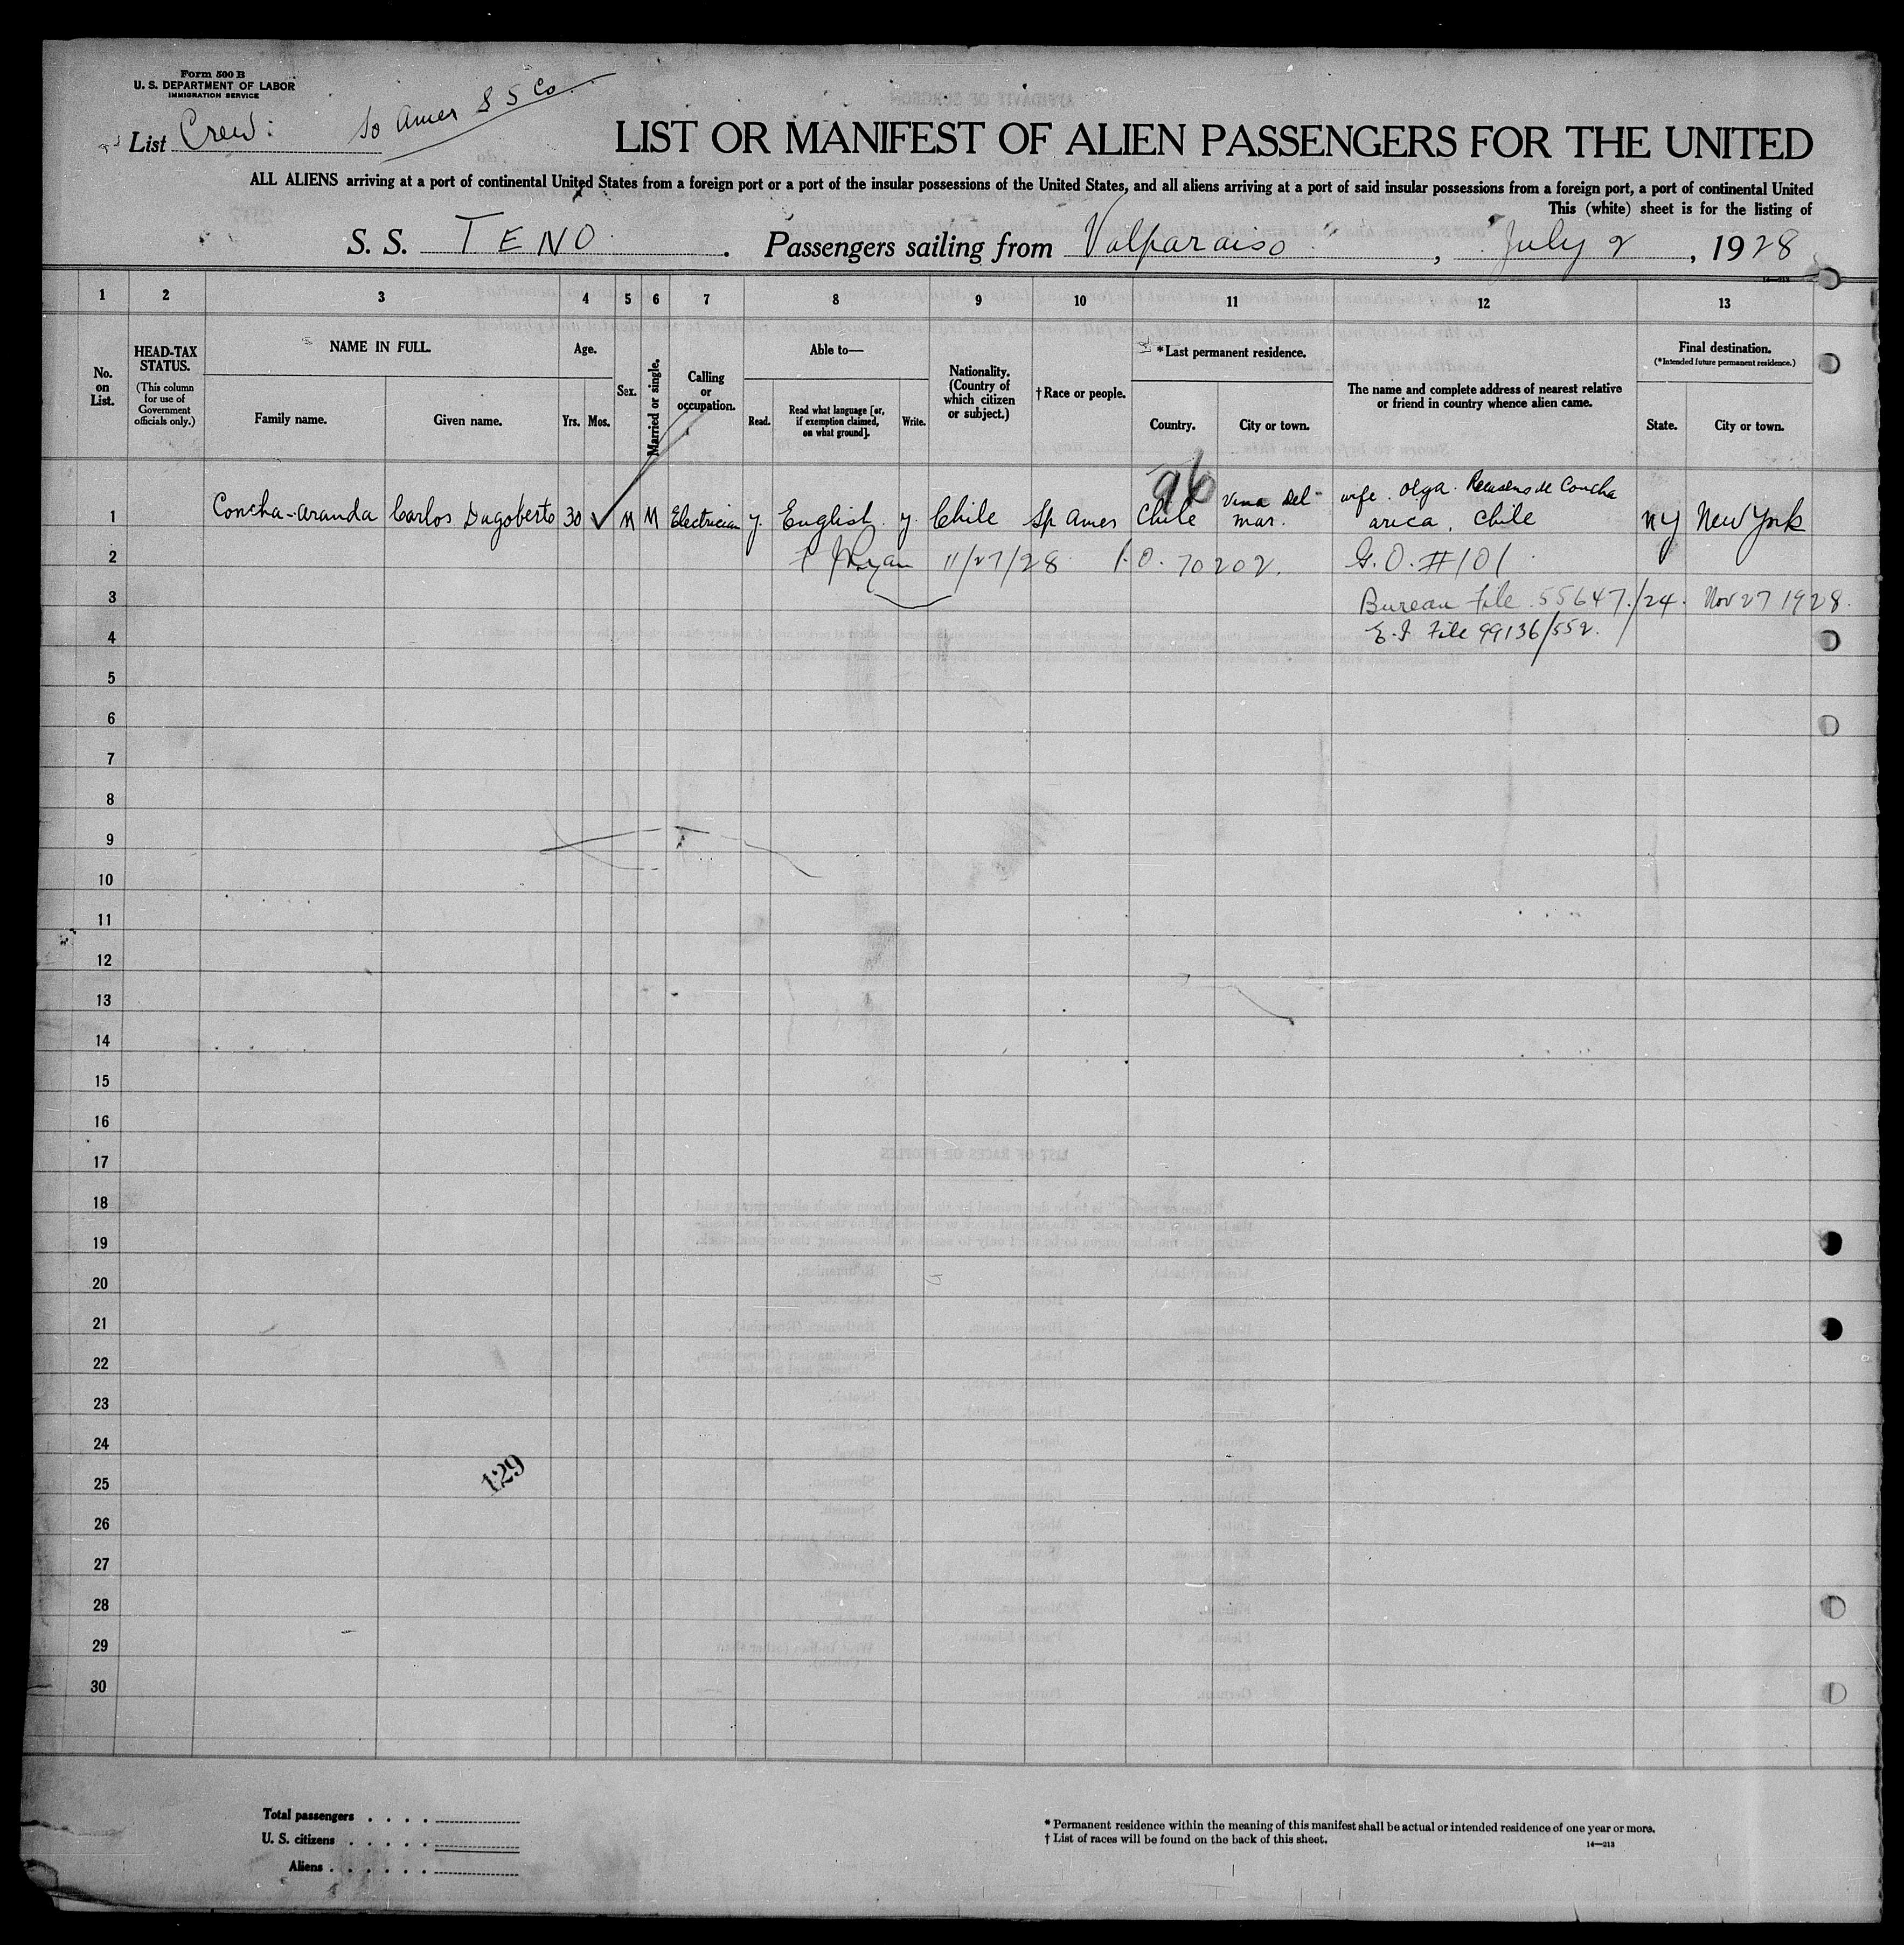 Form 500 B
U. S. DEPARTMENT OF LABOR
IMMIGRATION SERVICE
List Crew: So Amer S S Co.
LIST OR MANIFEST OF ALIEN PASSENGERS FOR THE UNITED
ALL ALIENS arriving at a port of continental United States from a foreign port or a port of the insular possessions of the United States, and all aliens arriving at a port of said insular possessions from a foreign port, a port of continental United
This (white) sheet is for the listing of
S. S. TENO. Passengers sailing from Valparaiso, July 2, 1928
14—213
1 2 3 4 5 6 7 8 9 10 11 12 13
No. on List.
HEAD-TAX STATUS.
(This column for use of Government officials only.)
NAME IN FULL.
Family name. Given name.
Age.
Yrs. Mos.
Sex.
Married or single.
Calling or occupation.
Able to—
Read. Read what language [or, if exemption claimed, on what ground]. Write.
Nationality. (Country of which citizen or subject.)
† Race or people.
*Last permanent residence.
Country. City or town.
The name and complete address of nearest relative or friend in country whence alien came.
Final destination.
(*Intended future permanent residence.)
State. City or town.
96
1 Concha-Aranda Carlos Dagoberto 30 ✓ M M Electrician y. English. y. Chile Sp Amer Chile Vina Del Mar. wife. Olga de Concha Arica, Chile NY New York
2 Ryan 11/27/28 70202. G.O. #101
3 Bureau File 55647/24. Nov 27 1928.
4 E.I. File 99136/552.
5
6
7
8
9
10
11
12
13
14
15
16
17
18
19
20
21
22
23
24
25
26
27
28
29
30
129
Total passengers . . . .
U. S. citizens . . . . .
Aliens . . . . . .
* Permanent residence within the meaning of this manifest shall be actual or intended residence of one year or more.
† List of races will be found on the back of this sheet.
14—213